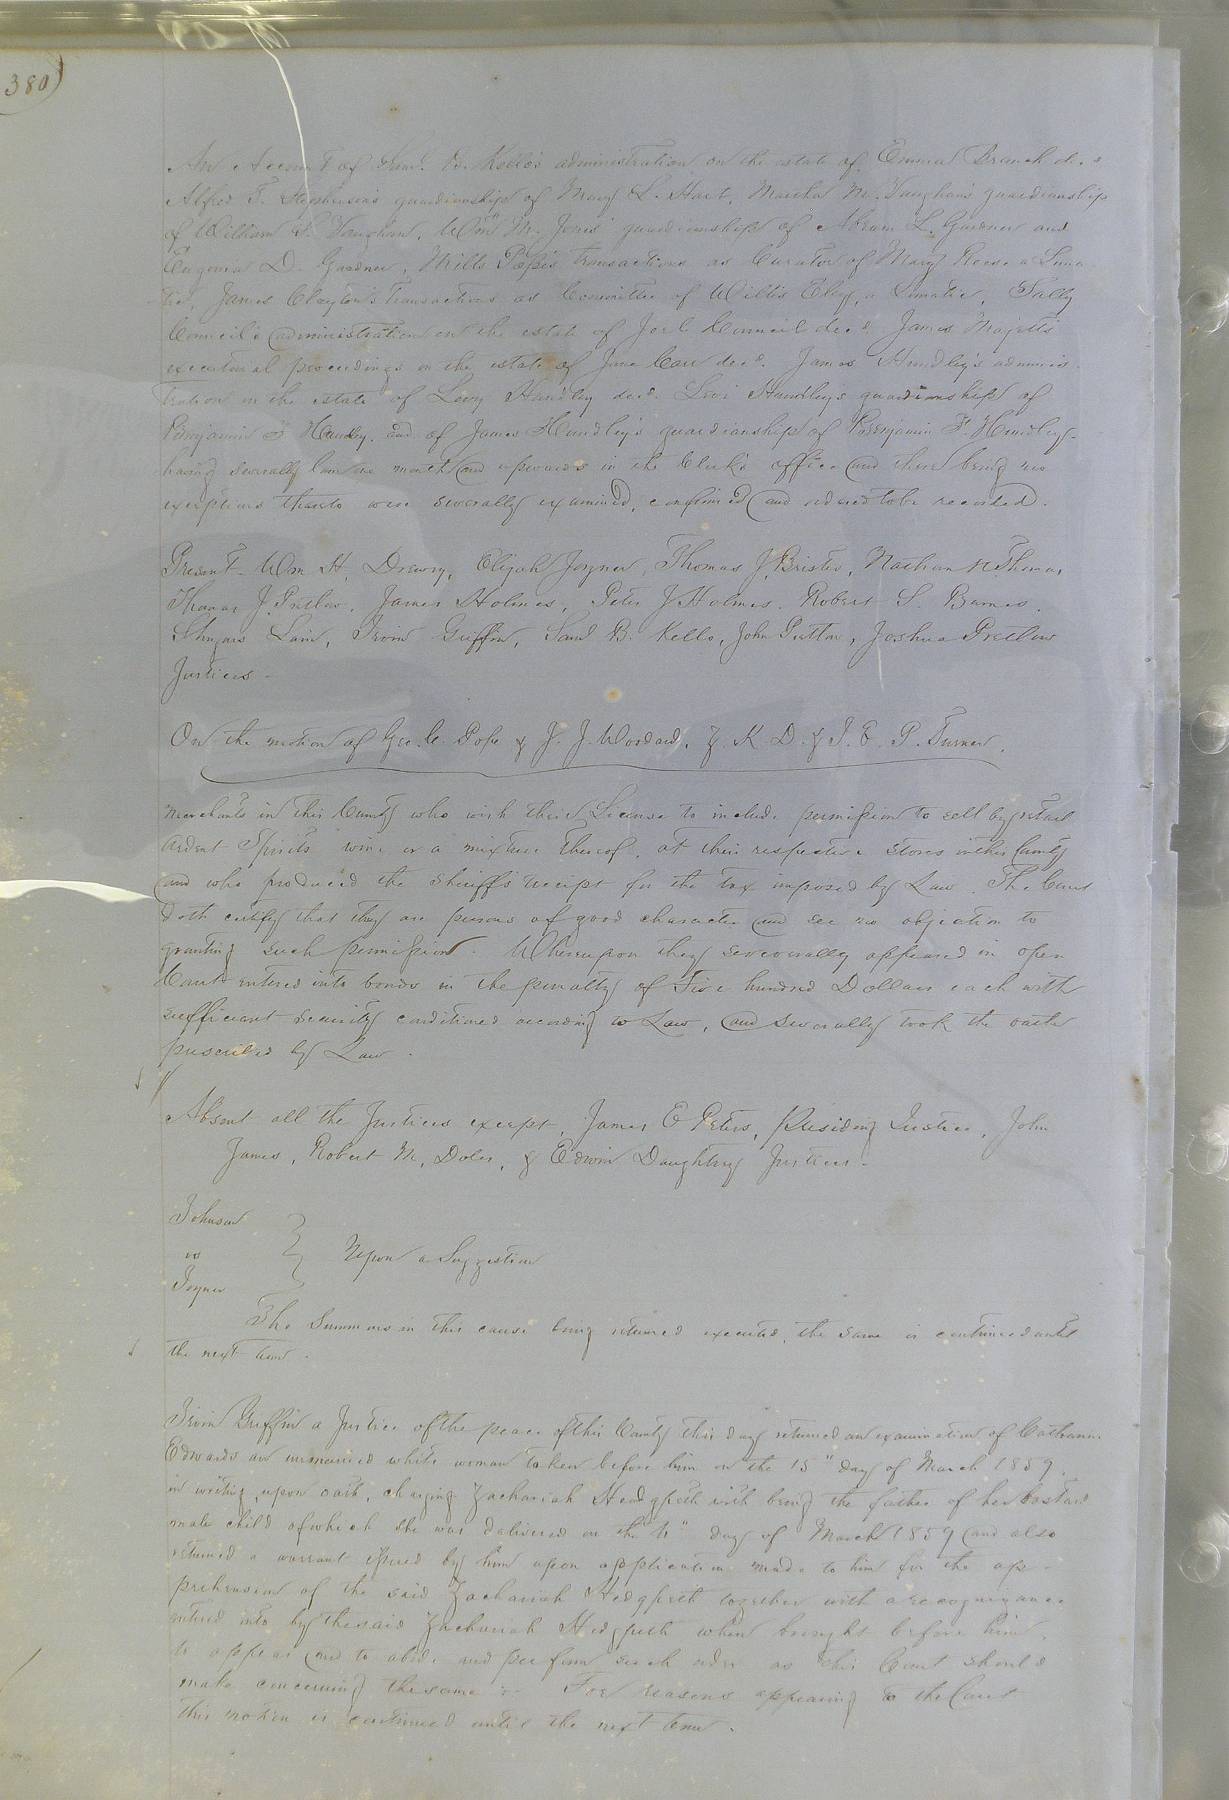 380)
An Account of Saml. B. Kello's administration on the estate of Emma Branch dec.d
Alfred T. Stephenson's guardianship of Mary L. Hart, Martha M. Vaughan's guardianship
of William S. Vaughan, Wm M. Jones' guardianship of Abram L. Gardner and
Eugenia D. Gardner, Mills Pope's transactions as Curator of Mary Reese a Luna-
tic, James Clayton's transactions as Committee of Willis Eley, a Lunatic, Sally
Council's administration on the estate of Joel Council decd. James Majett's
executorial proceedings on the estate of Jane Carr decd. James Handley's adminis
tration on the estate of Levy Handley decd. Levi Handley's guardianship of
Benjamin F Handley, and of James Handley's guardianship of Benjamin F Handley-
having severally lain one month and upwards in the Clerk's office and there being no
exceptions thereto were severally examined, confirmed and ordered to be recorded.
Present - Wm H. Drewry, Elijah Joyner, Thomas J. Bristo, Nathan Thomas
Thomas J. Pretlow, James Holmes, Peter J Holmes, Robert S. Barnes,
Lain, Irvin Griffin, Saml B. Kello, John Pretlow, Joshua Pretlow
Justices -
On the motion of Geo. C. Pope & J. J. Woodard, & K. D. & J. E. P. Turner,
merchants in this County who wish their License to include permission to sell by retail
ardent Spirits wine or a mixture thereof, at their respective stores in this County
and who produced the sheriff's receipt for the tax imposed by Law. The Court
doth certify that they are persons of good character and see no objection to
granting such permission. Whereupon they severally appeared in open
Court entered into bonds in the penalty of Five hundred Dollars each with
sufficient security conditioned according to Law, and severally took the oaths
prescribed by Law.
Absent all the Justices except, James E Peters, Presiding Justice, John
James, Robert M. Doles, & Edwin Daughtry Justices -
Johnson
vs } Upon a Suggestion
Joyner
The Summons in this cause being returned executed, the same is continued until
the next term.
Irvin Griffin a Justice of the peace of this County this day returned an examination of Catharine
Edwards an unmarried white woman taken before him on the 15" day of March 1859.
in writing, upon oath, charging Zachariah Hedgpeth with being the father of her bastard
male child of which she was delivered on the day of March 1859 and also
returned a warrant issued by him upon application made to him for the ap-
prehension of the said Zachariah Hedgpeth together with a recognizance
entered into by the said Zachariah Hedgpeth when brought before him,
to appear and to abide and perform such order as this Court should
make concerning the same :- For reasons appearing to the Court
this motion is continued until the next term.